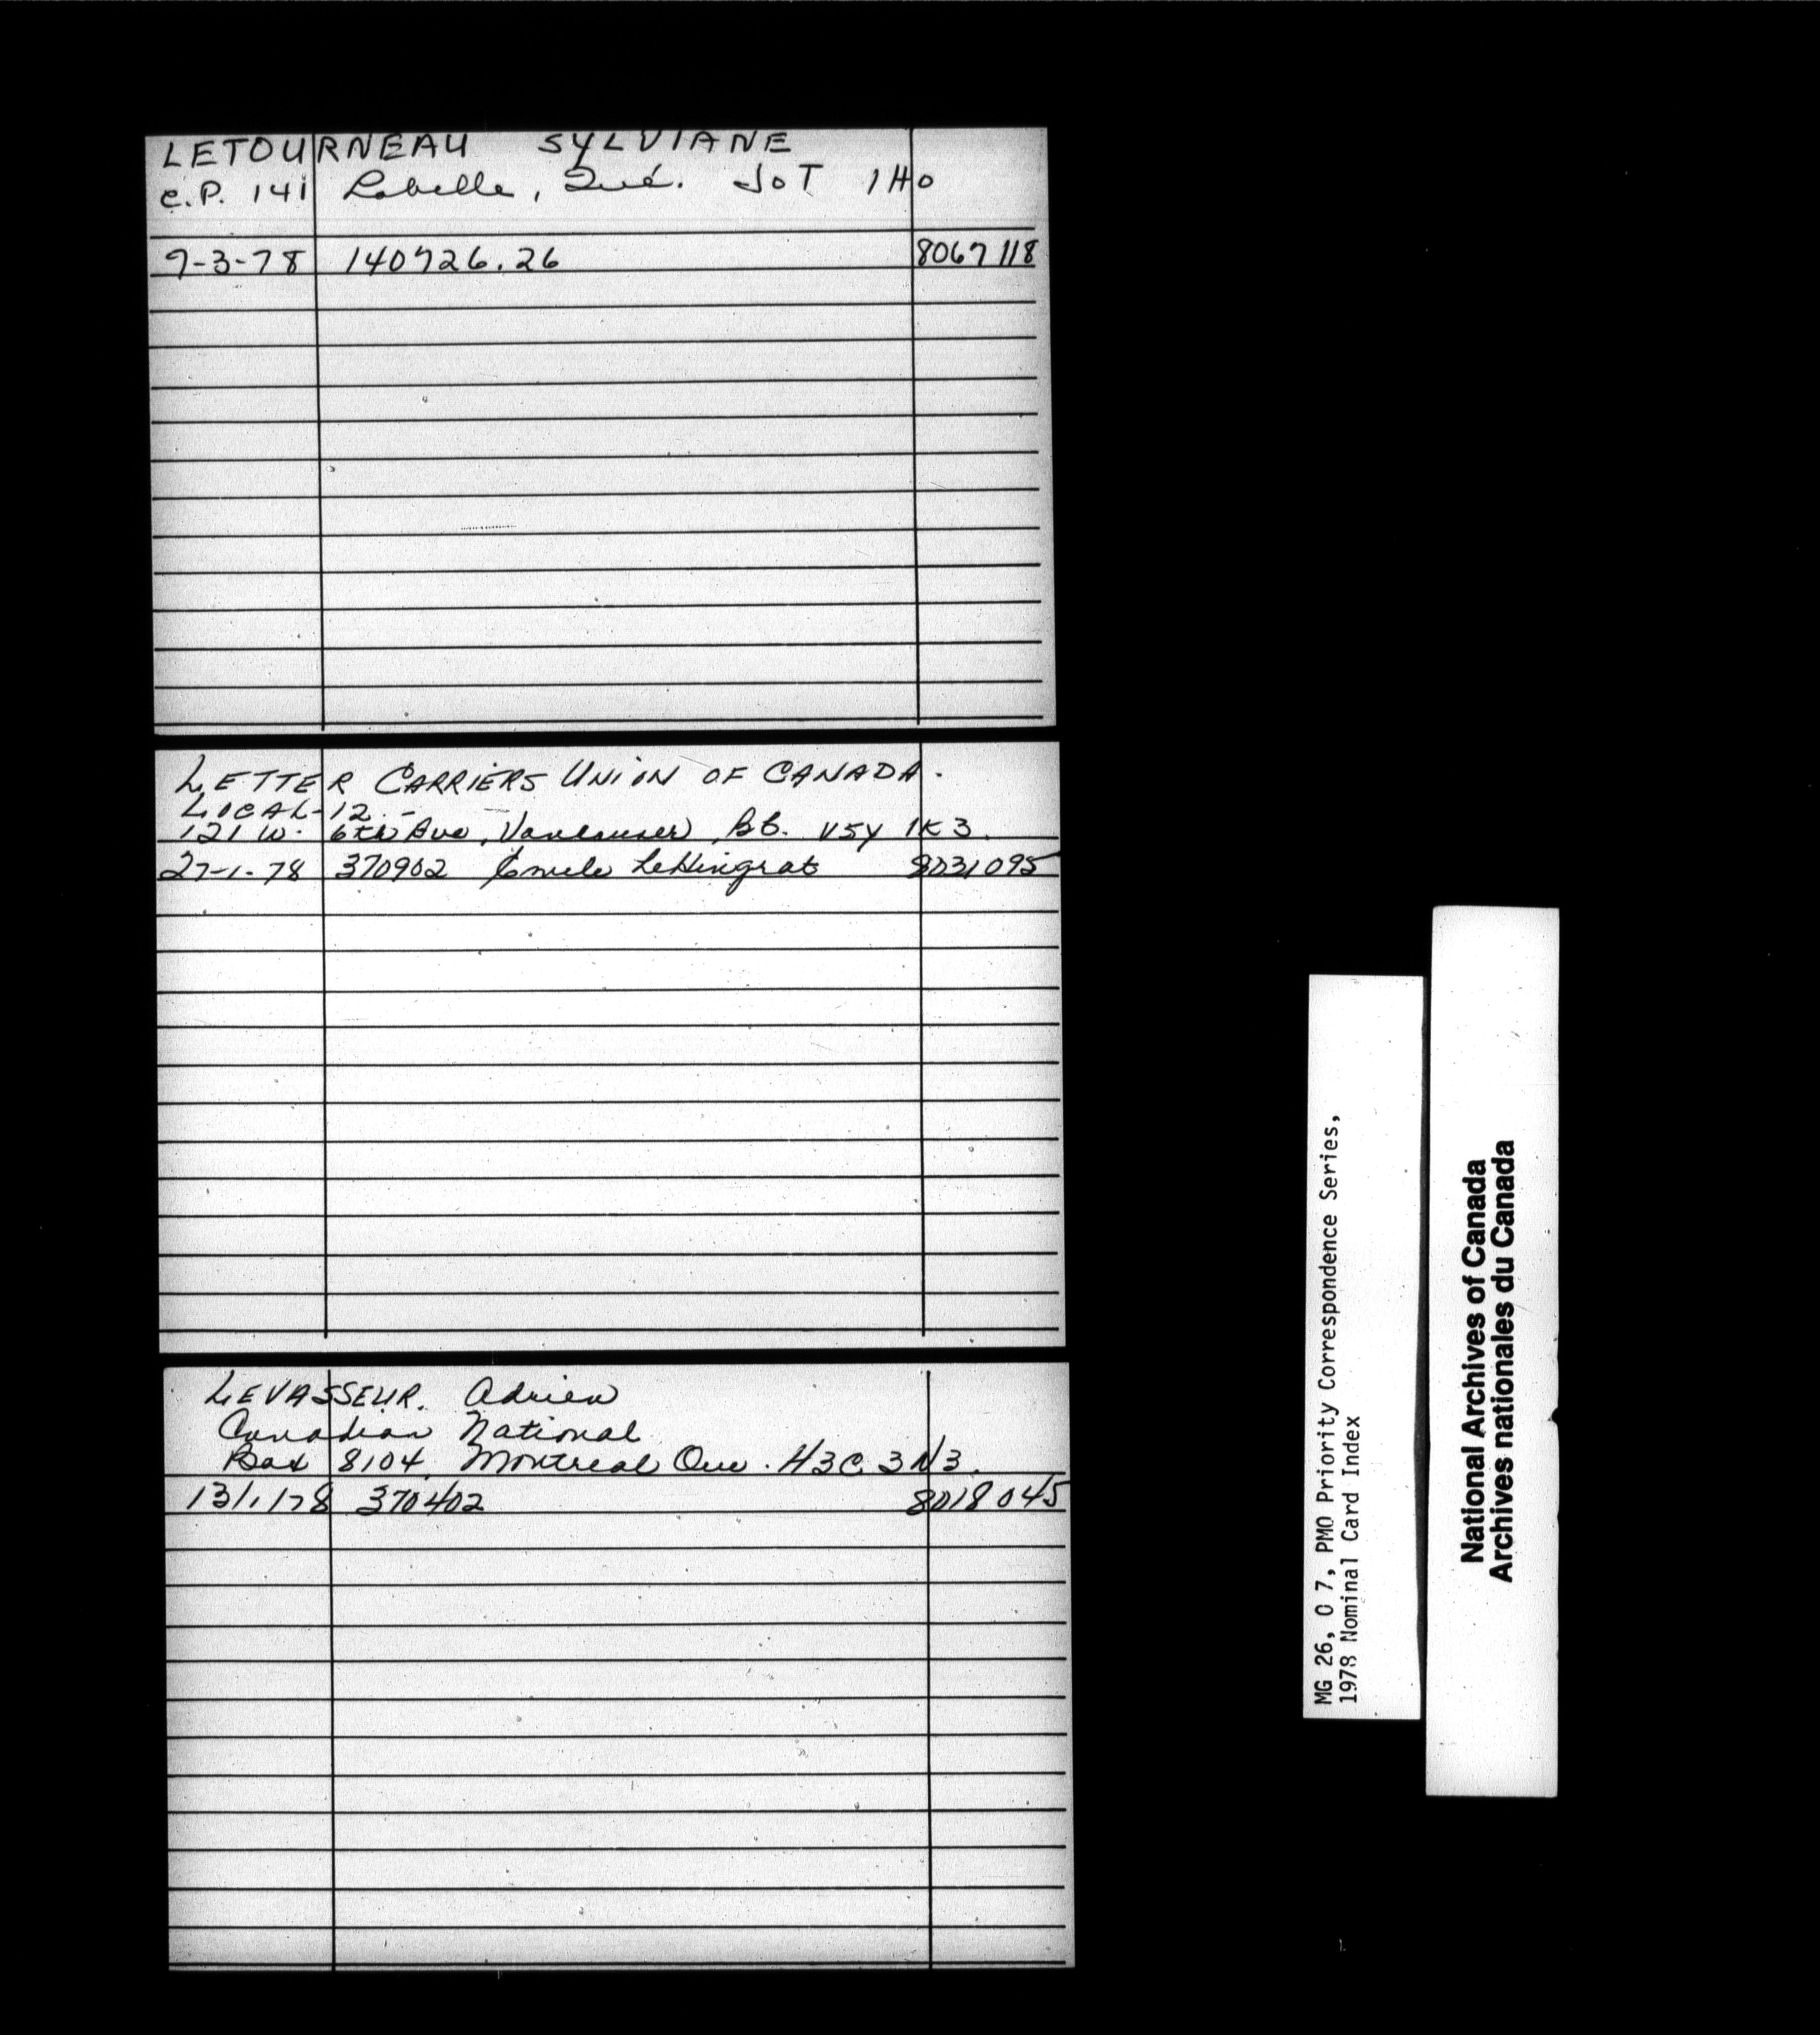 LETOURNEAU SYLVIANE
C.P. 141 Labelle, Qué. J0T 1H0
9-3-78 140726.26 8067118
LETTER CARRIERS UNION OF CANADA.
LOCAL-12.-
121 W. 6th Ave, Vancouver, BC. V5Y 1K3.
27-1-78 370902 8031095
LEVASSEUR. Adrien
Canadian National
Box 8104, Montreal Que. H3C 3N3.
13/1/78 370402 8018045
MG 26, O 7, PMO Priority Correspondence Series,
1978 Nominal Card Index
National Archives of Canada
Archives nationales du Canada